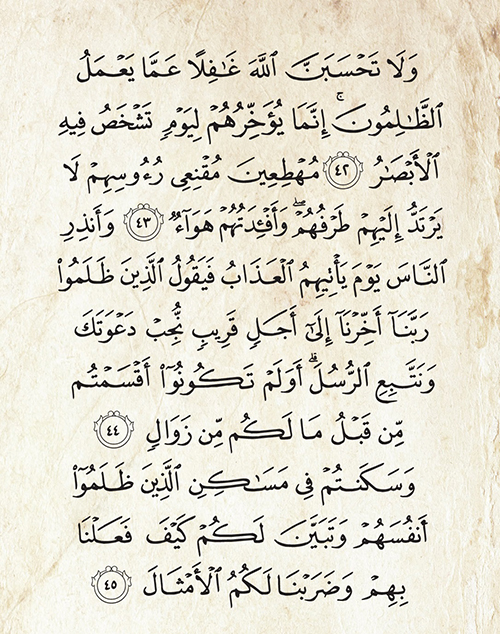 وَلَا تَحْسَبَنَّ ٱللَّهَ غَـٰفِلًا عَمَّا يَعْمَلُ
ٱلظَّـٰلِمُونَ ۚ إِنَّمَا يُؤَخِّرُهُمْ لِيَوْمٍ تَشْخَصُ فِيهِ
ٱلْأَبْصَـٰرُ ﴿٤٢﴾ مُهْطِعِينَ مُقْنِعِى رُءُوسِهِمْ لَا
يَرْتَدُّ إِلَيْهِمْ طَرْفُهُمْ ۖ وَأَفْـِٔدَتُهُمْ هَوَآءٌ ﴿٤٣﴾ وَأَنذِرِ
ٱلنَّاسَ يَوْمَ يَأْتِيهِمُ ٱلْعَذَابُ فَيَقُولُ ٱلَّذِينَ ظَلَمُوا۟
رَبَّنَآ أَخِّرْنَآ إِلَىٰٓ أَجَلٍ قَرِيبٍ نُّجِبْ دَعْوَتَكَ
وَنَتَّبِعِ ٱلرُّسُلَ ۗ أَوَلَمْ تَكُونُوٓا۟ أَقْسَمْتُم
مِّن قَبْلُ مَا لَكُم مِّن زَوَالٍ ﴿٤٤﴾
وَسَكَنتُمْ فِى مَسَـٰكِنِ ٱلَّذِينَ ظَلَمُوٓا۟
أَنفُسَهُمْ وَتَبَيَّنَ لَكُمْ كَيْفَ فَعَلْنَا
بِهِمْ وَضَرَبْنَا لَكُمُ ٱلْأَمْثَالَ ﴿٤٥﴾